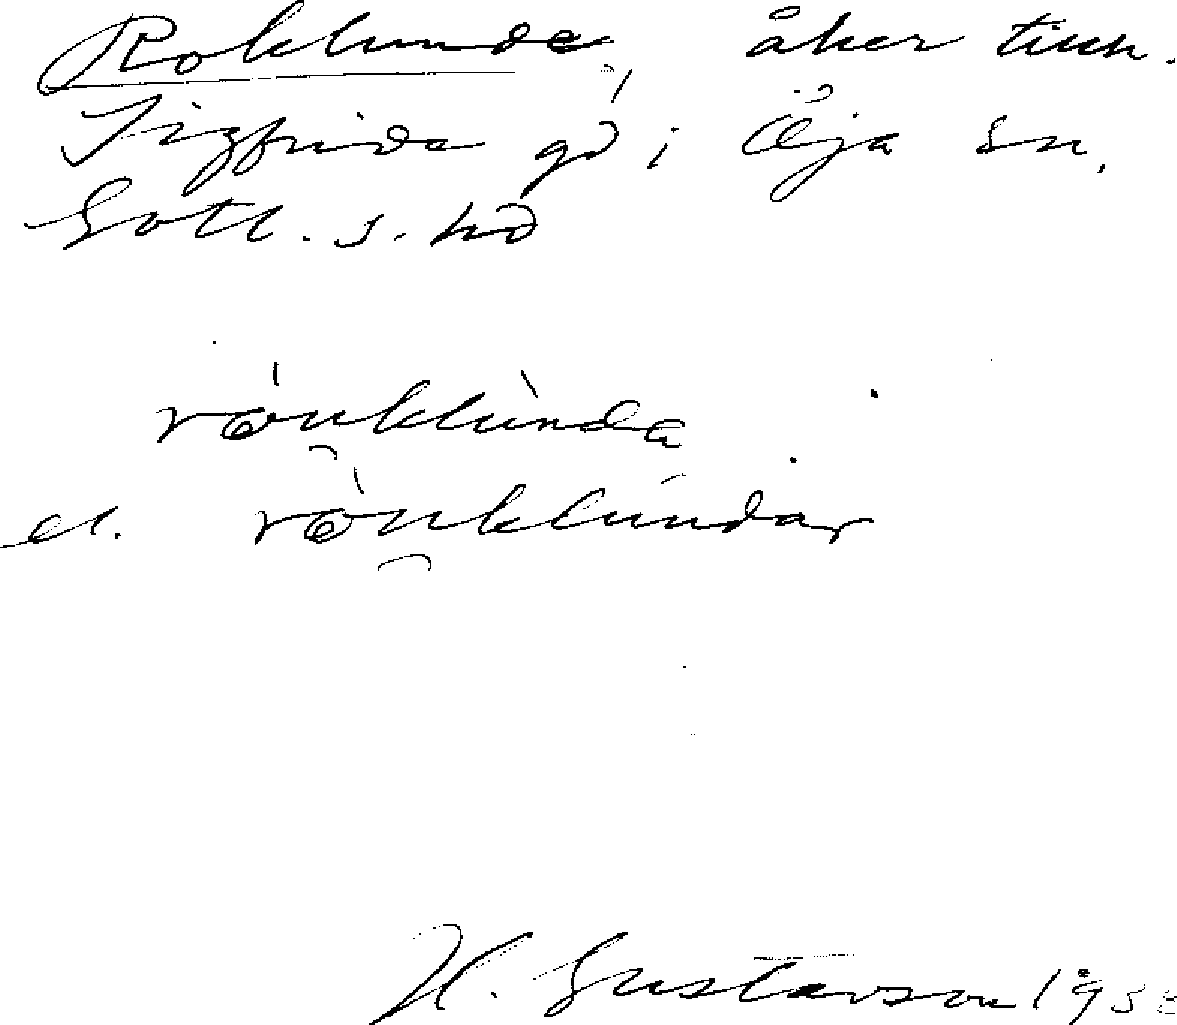 Roklunde, åker tillh.
Sigfride gd i Öja sn,
Gotl. s. hd
rǿuklùnda
el. rǿuklúndar
H. Gustavson 195